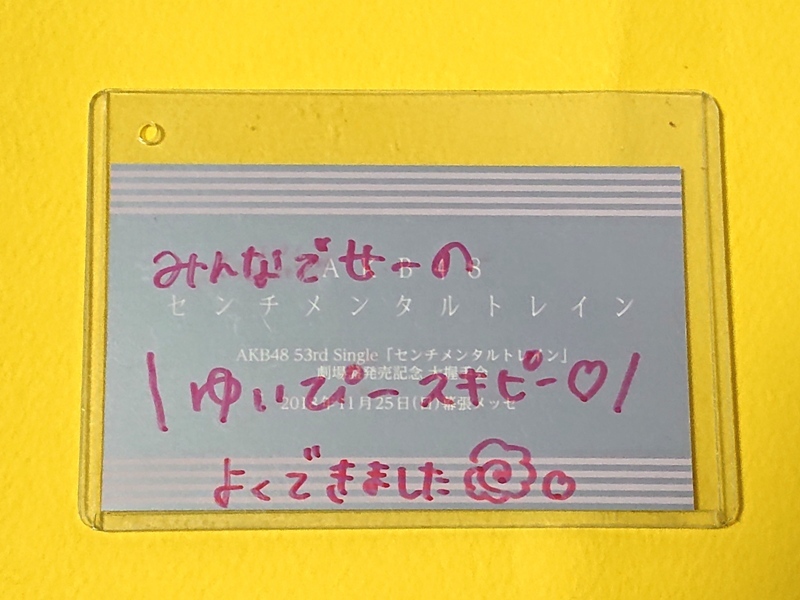 みんなでせーの
AKB48
センチメンタルトレイン
AKB48 53rd Single「センチメンタルトレイン」
劇場盤発売記念 大握手会
\ ゆいぴースキピー♡ /
2018年11月25日(日)幕張メッセ
よくできました